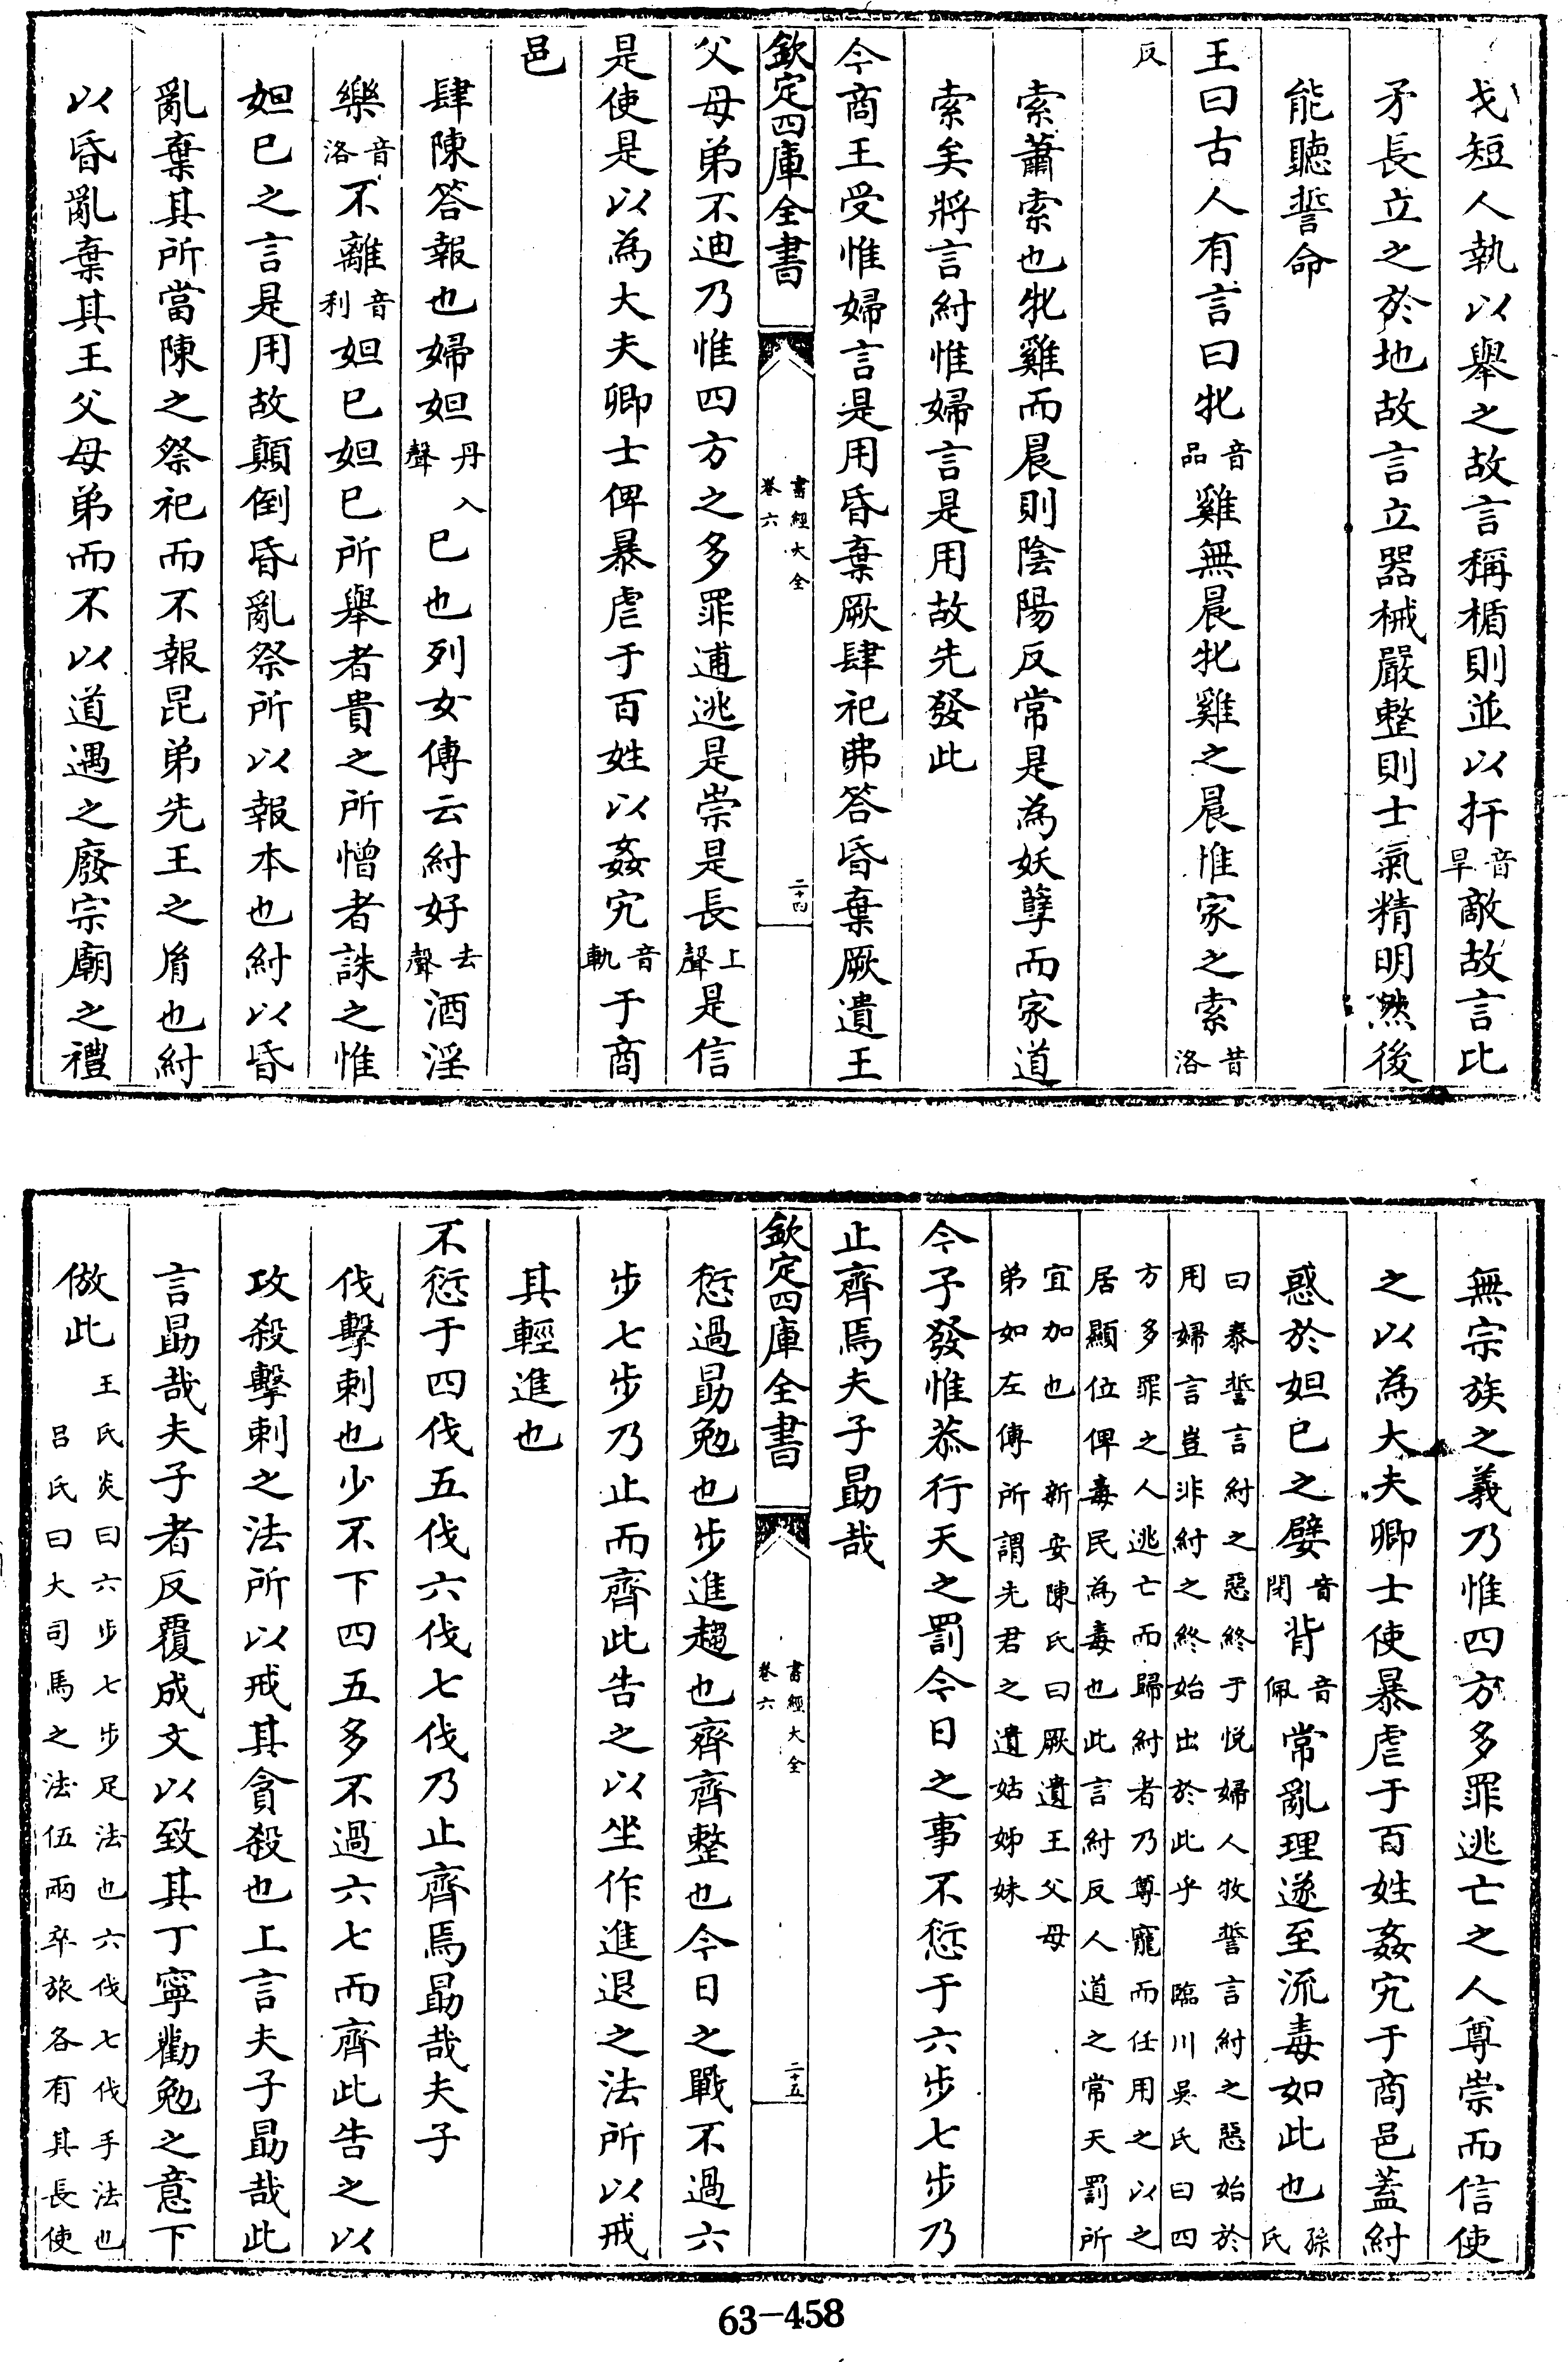 戈短人執以舉之故言稱楯則並以扞音旱敵故言比
矛長立之於地故言立器械嚴整則士氣精明然後
能聽誓命
王曰古人有言曰牝音品雞無晨牝雞之晨惟家之索昔洛
反
索蕭索也牝雞而晨則陰陽反常是為妖孽而家道
索矣將言紂惟婦言是用故先發此
今商王受惟婦言是用昏棄厥肆祀弗答昏棄厥遺王
欽定四庫全書
書經大全
卷六
二十四
父母弟不迪乃惟四方之多罪逋逃是崇是長上聲是信
是使是以為大夫卿士俾暴虐于百姓以姦宄音軌于商
邑
肆陳答報也婦妲丹入聲己也列女傳云紂好去聲酒淫
樂音洛不離音利妲己妲己所舉者貴之所憎者誅之惟
妲己之言是用故顛倒昏亂祭所以報本也紂以昏
亂棄其所當陳之祭祀而不報昆弟先王之胤也紂
以昏亂棄其王父母弟而不以道遇之廢宗廟之禮
無宗族之義乃惟四方多罪逃亡之人尊崇而信使
之以為大夫卿士使暴虐于百姓姦宄于商邑蓋紂
惑於妲己之嬖音閉背音佩常亂理遂至流毒如此也孫氏
曰泰誓言紂之惡終于悅婦人牧誓言紂之惡始於
用婦言豈非紂之終始出於此乎 臨川吳氏曰四
方多罪之人逃亡而歸紂者乃尊寵而任用之以之
居顯位俾毒民為毒也此言紂反人道之常天罰所
宜加也 新安陳氏曰厥遺王父母
弟如左傳所謂先君之遺姑姊妹
今予發惟恭行天之罰今日之事不愆于六步七步乃
止齊焉夫子勖哉
欽定四庫全書
書經大全
卷六
二十五
愆過勖勉也步進趨也齊齊整也今日之戰不過六
步七步乃止而齊此告之以坐作進退之法所以戒
其輕進也
不愆于四伐五伐六伐七伐乃止齊焉勖哉夫子
伐擊刺也少不下四五多不過六七而齊此告之以
攻殺擊刺之法所以戒其貪殺也上言夫子勖哉此
言勖哉夫子者反覆成文以致其丁寧勸勉之意下
倣此王氏炎曰六步七步足法也六伐七伐手法也
呂氏曰大司馬之法伍兩卒旅各有其長使
63-458